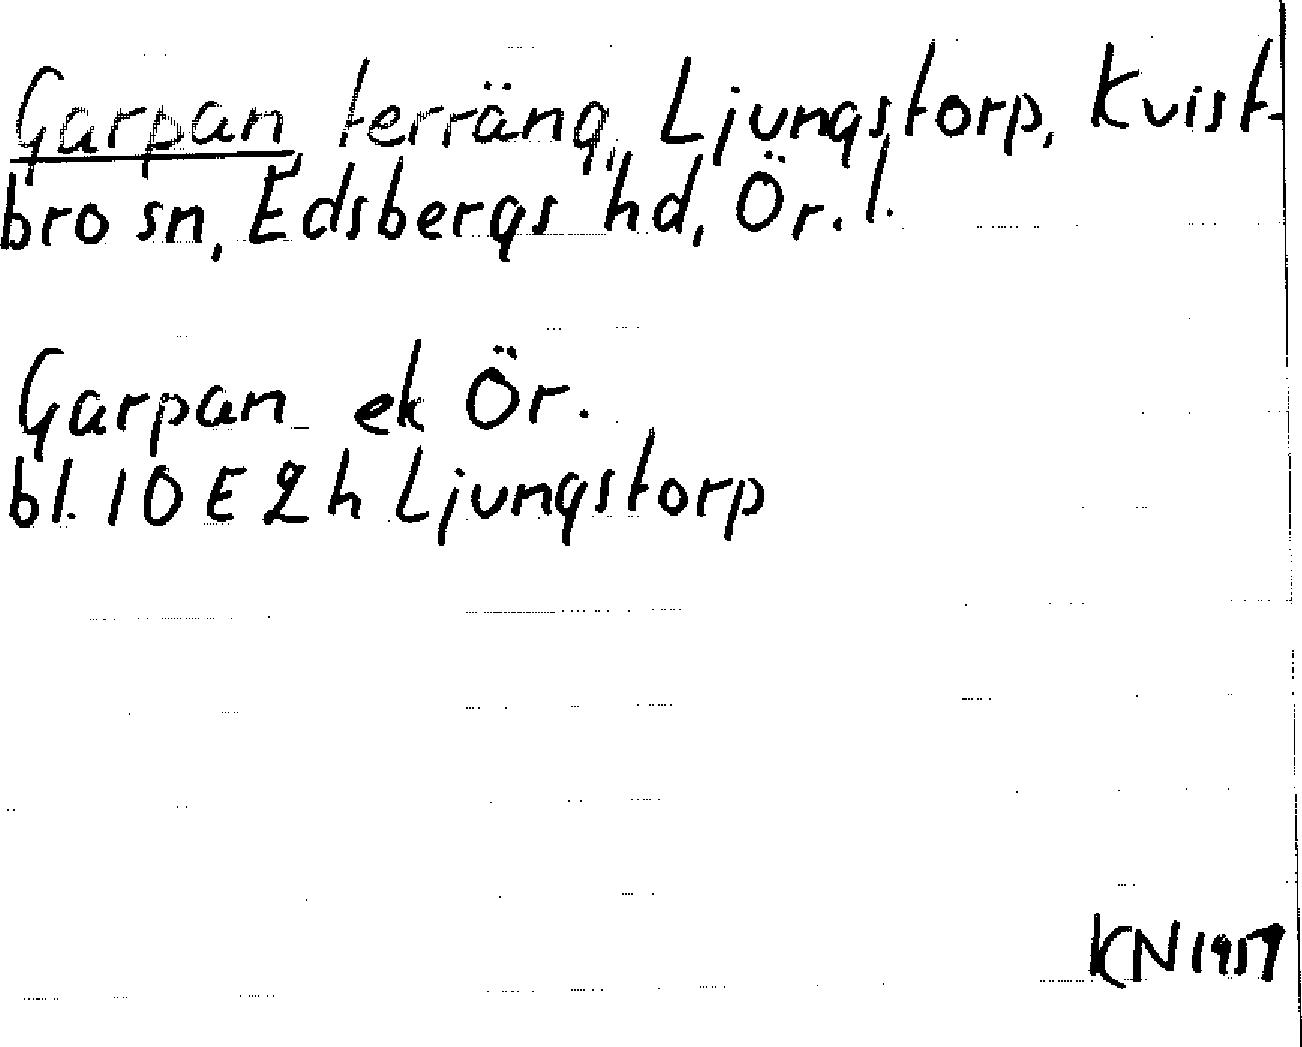 Garpan, terräng, Ljungstorp, Kvist-
bro sn, Edsbergs hd, Ör. l.
Garpan ek Ör.
bl. 10 E 2 h Ljungstorp
KN 1957